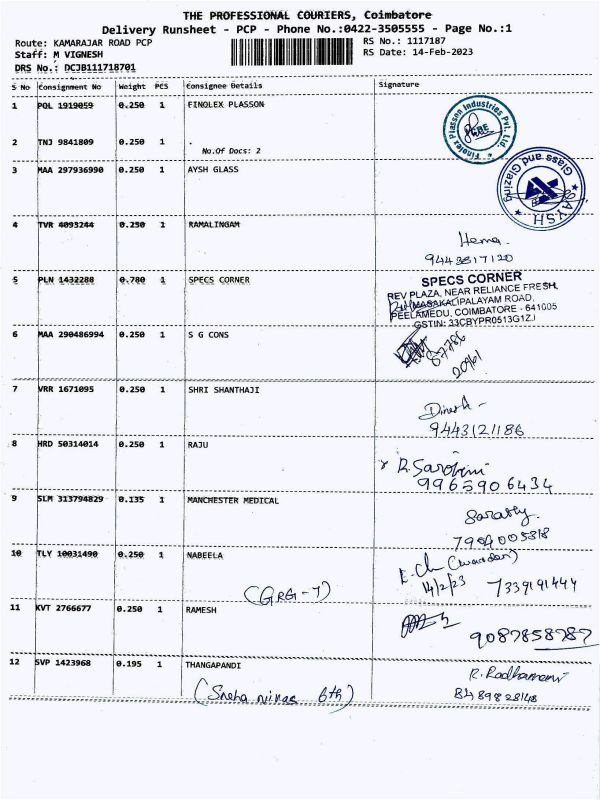 THE PROFESSIONAL COURIERS, Coimbatore
Delivery Runsheet - PCP - Phone No.:0422-3505555 - Page No.:1
Route: KAMARAJAR ROAD PCP
RS No.: 1117187
Staff: M VIGNESH
RS Date: 14-Feb-2023
DRS No.: DCJB111718701
S No Consignment No Weight PCS Consignee Details Signature
1 POL 1919059 0.250 1 FINOLEX PLASSON
Finolex Plasson Industries Pvt. Ltd.
CBE
2 TNJ 9841809 0.250 1 .
No.Of Docs: 2
3 MAA 297936990 0.250 1 AYSH GLASS
AYSH Glass and Glazing
4 TVR 4093244 0.250 1 RAMALINGAM
Hema
9443817120
5 PLN 1432288 0.780 1 SPECS CORNER
SPECS CORNER
REV PLAZA, NEAR RELIANCE FRESH,
MASAKALIPALAYAM ROAD,
PEELAMEDU, COIMBATORE - 641005
GSTIN: 33CBYPR0513G1ZJ
6 MAA 290486994 0.250 1 S G CONS
87786
20961
7 VRR 1671095 0.250 1 SHRI SHANTHAJI
Dinesh
9443121186
8 HRD 50314014 0.250 1 RAJU
R. Sarojini
9965906434
9 SLM 313794829 0.135 1 MANCHESTER MEDICAL
Sarathy.
7904005318
10 TLY 10031490 0.250 1 NABEELA
(GRG-7)
(warden)
14/2/23 7339191444
11 KVT 2766677 0.250 1 RAMESH
9087858787
12 SVP 1423968 0.195 1 THANGAPANDI
(Sneha nivas 6th)
R. Radhamani
8489828148